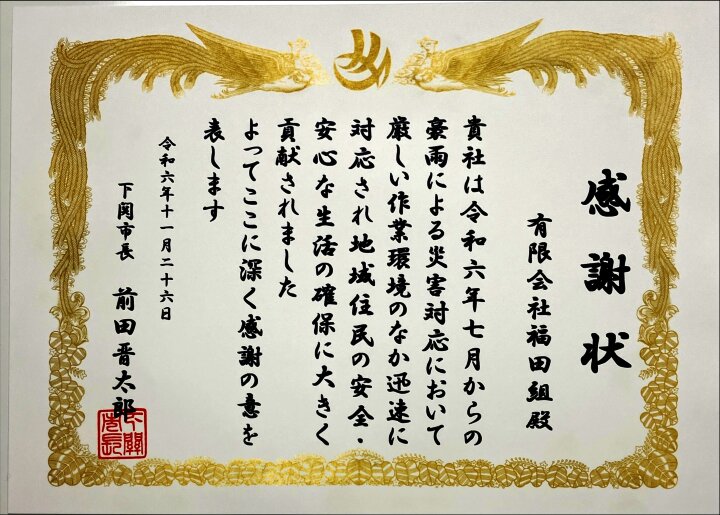 感謝状
有限会社福田組殿
貴社は令和六年七月からの
豪雨による災害対応において
厳しい作業環境のなか迅速に
対応され地域住民の安全・
安心な生活の確保に大きく
貢献されました
よってここに深く感謝の意を
表します
令和六年十一月二十六日
下関市長 前田晋太郎